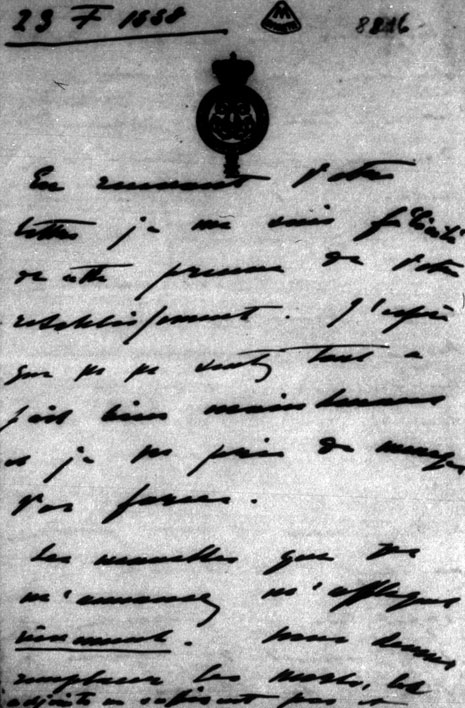 23 F 1888
8816
En recevant Votre
lettre je me suis félicité
de cette preuve de Votre
rétablissement. J'espère
que Vs Vs sentez tout à
fait bien maintenant
et je Vs prie de ménager
Vos forces.
Les nouvelles que Vs
m'annoncez m'affligent
vivement. Nous devons
remplacer les morts, les
adjoints ne suffisent pas